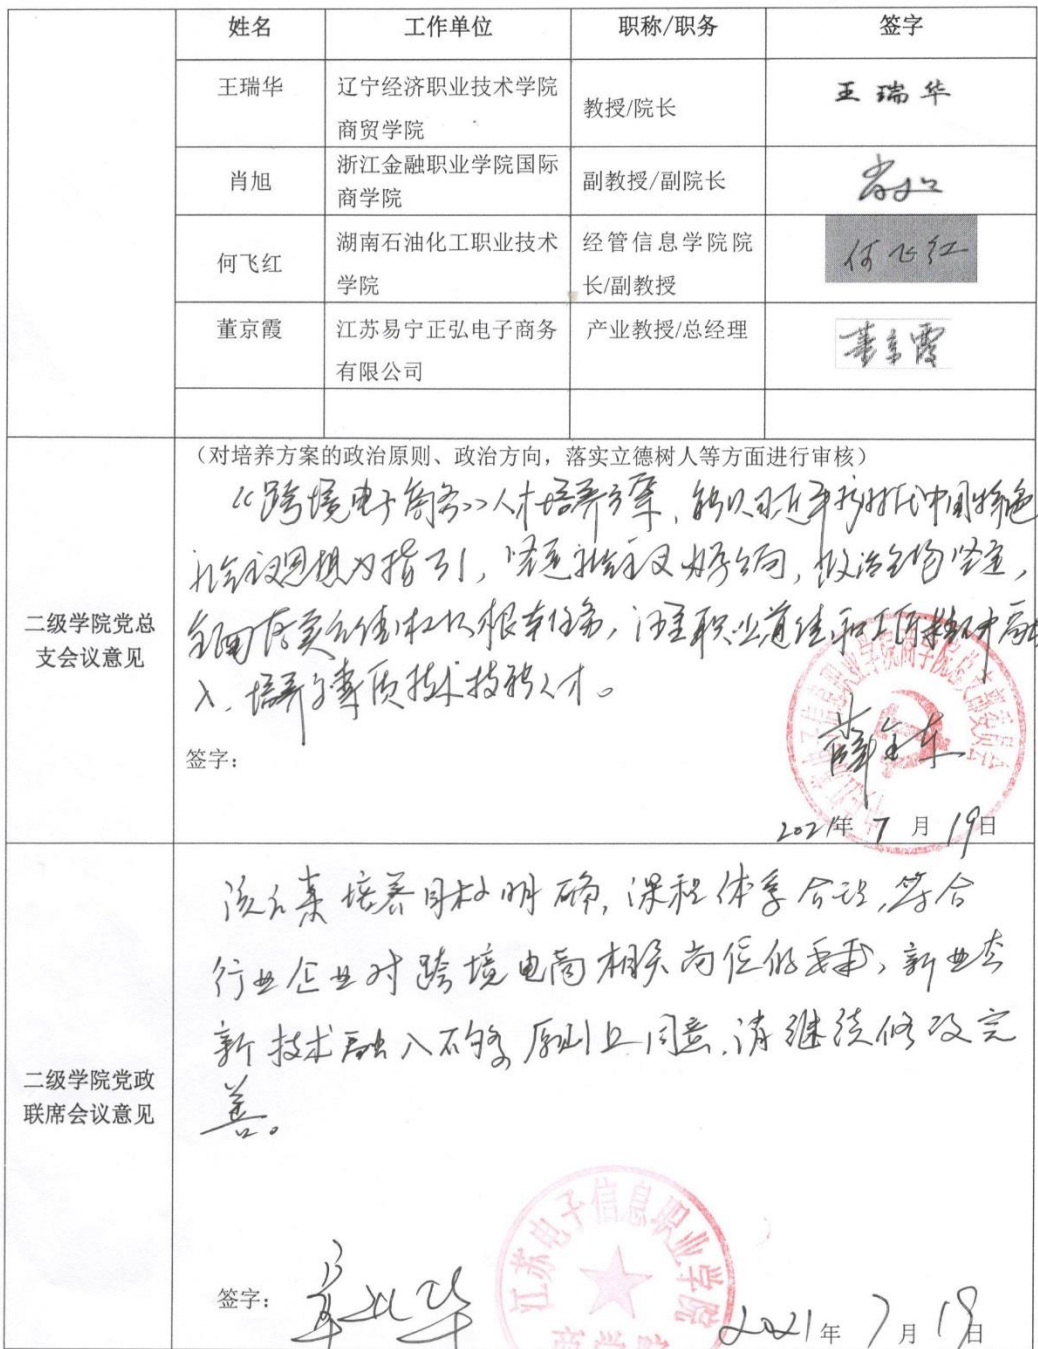 姓名 工作单位 职称/职务 签字
王瑞华 辽宁经济职业技术学院 教授/院长 王瑞华
商贸学院
肖旭 浙江金融职业学院国际 副教授/副院长
商学院
何飞红 湖南石油化工职业技术 经管信息学院院 何飞红
学院 长/副教授
董京霞 江苏易宁正弘电子商务 产业教授/总经理 董京霞
有限公司
二级学院党总
支会议意见
(对培养方案的政治原则、政治方向,落实立德树人等方面进行审核)
《跨境电子商务》人才培养方案,能以习近平新时代中国特色
社会主义思想为指引,坚定社会主义办学方向,政治方向坚定,
全面落实立德树人根本任务,注重职业道德和工匠精神
入,培养高素质技术技能人才。
签字:
薛全东
2021年 7 月 19日
二级学院党政
联席会议意见
该方案培养目标明确,课程体系合理,符合
行业企业对跨境电商相关岗位的要求,新业态
新技术融入不够,原则上同意,请继续修改完
善。
签字:
江苏电子信息职业学院
商学院
2021 年 7 月 19 日